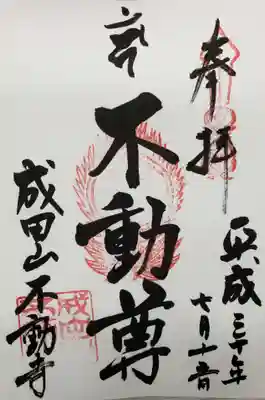 奉拝
平成三十年
七月十
不動尊
成田山不動寺